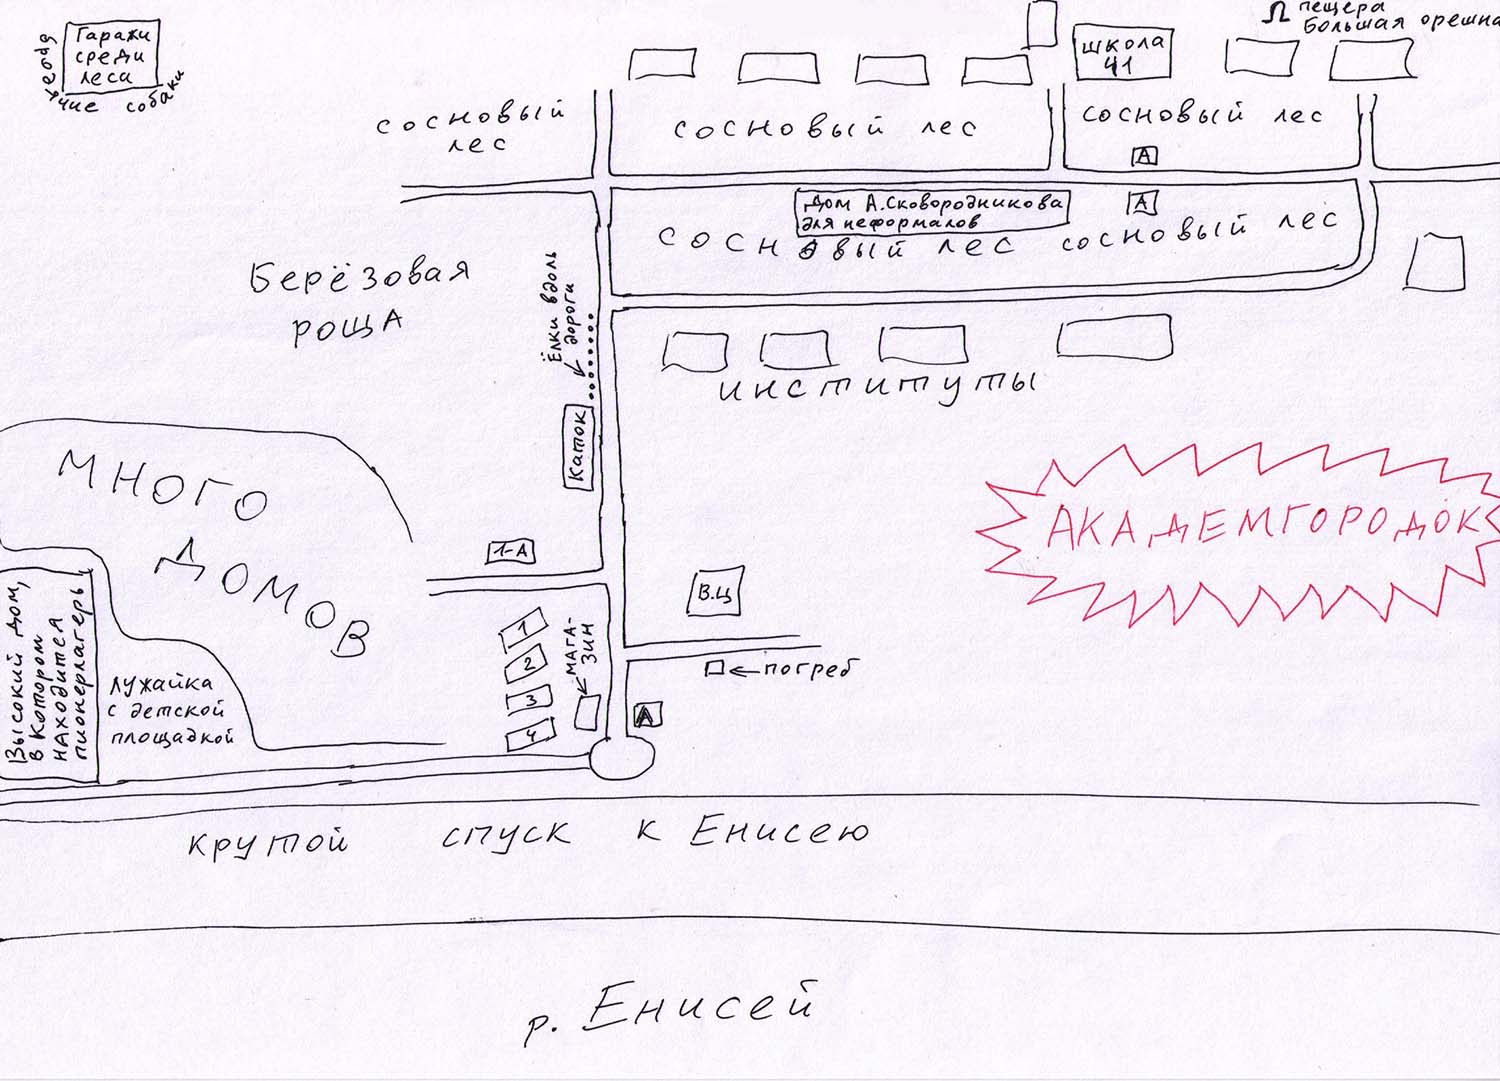 Гаражи
среди
леса
бродячие собаки
пещера
Большая орешна
школа
41
сосновый
лес
сосновый лес
сосновый лес
А
Дом А.Сковородникова
для неформалов
А
сосновый лес сосновый лес
Берёзовая
роща
Ёлки вдоль
дороги
институты
Каток
АКАДЕМГОРОДОК
много
домов
1-А
В.Ц
1
2
3
4
мага-
зин
погреб
А
Высокий дом,
в котором
находится
пионерлагерь
Лужайка
с детской
площадкой
крутой спуск к Енисею
р. Енисей